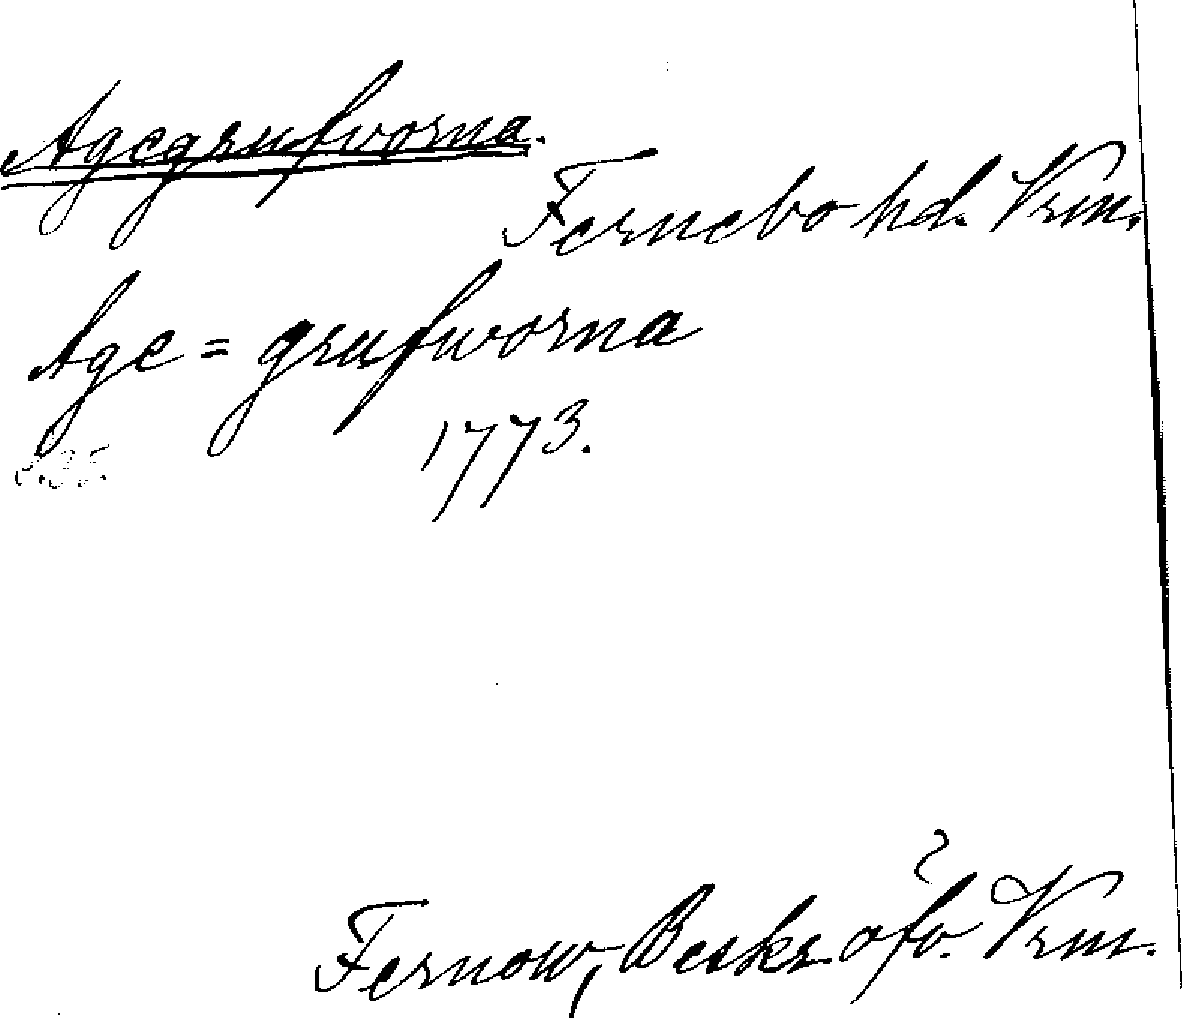 Agegrufworna.
Fernebo hd. Vrm.
Age = grufworna
1773.
s. 35.
Fernow, Beskr. öfv. Vrm.